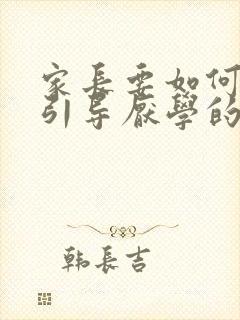 家長要如何
引导厌學的
韩長吉